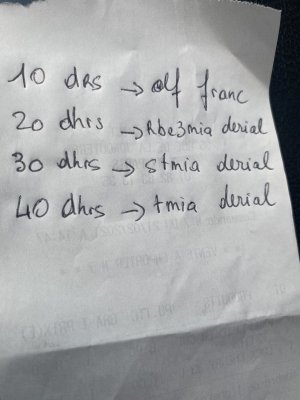 10 drs → olf franc
20 dhrs → Rbe3mia derial
30 dhrs → stmia derial
40 dhrs → tmia derial